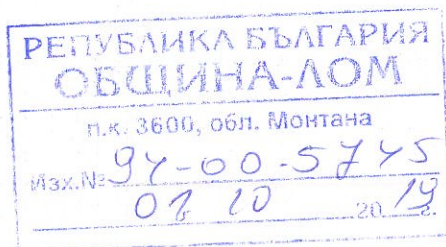 РЕПУБЛИКА БЪЛГАРИЯ
ОБЩИНА-ЛОМ
п.к. 3600, обл. Монтана
Изх.№ 94-00-5745
01 10 2019 г.